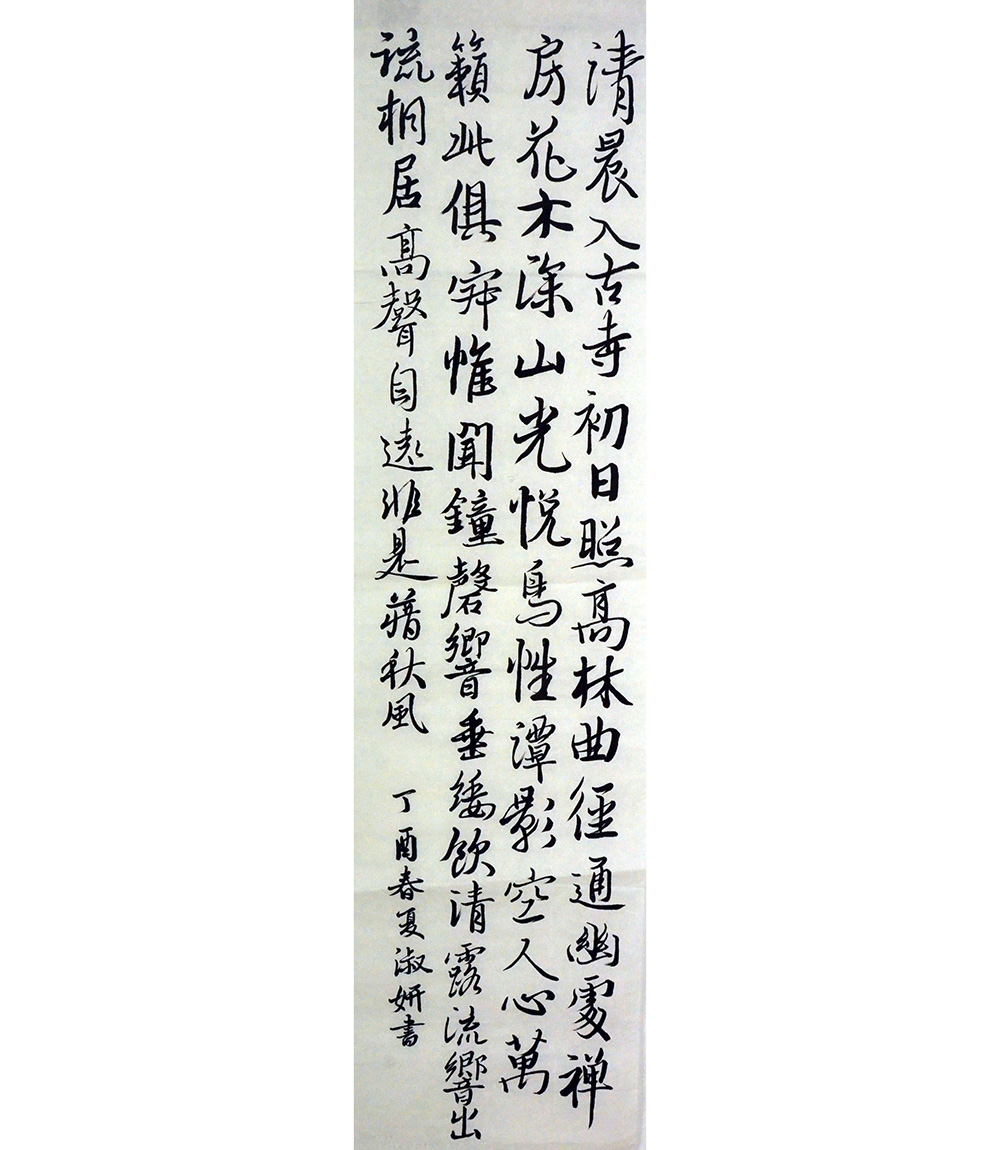 清晨入古寺初日照高林曲徑通幽處禪
房花木深山光悅鳥性潭影空人心萬
籟此俱寂惟聞鐘磬響垂緌飲清露流響出
疏桐居高聲自遠非是藉秋風
丁酉春夏淑妍書